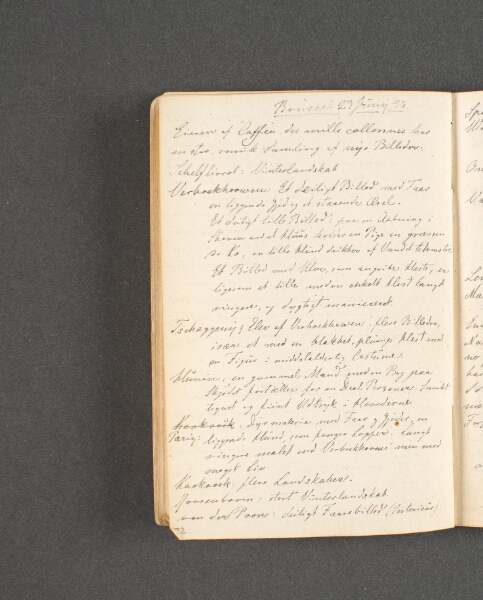 Brüssel 23 Juny 35.
Eieren af Caffeen du mille collonnes har
en stor, smuk Samling af nye Billeder.
Schelfhout: Vinterlandskab
Verboekhoewen Et deiligt Billed med Faar
en liggende Gjed og et staaende Æsel.
Et deiligt lille Billed; paa en Aabning i
Skoven ved et Huus holder en Pige en græssen-
de Ko, en lille Hund drikker af Vandet
Et Billed med Ulve, som angribe Heste,
ligesom et lille med en enkelt Hest langt
ringere, og dygtigt manieeret.
Tschaggeny; Elev af Verboekhowen: flere Billeder,
især et med en blakket, plump Hest med
en Figur i middelalderlig Costume.
Hunin, en gammel Mand med en Bog paa
Skjødet fortæller for en Deel Personer. Smukt
tegnet og fiint Udtryk i Hovederne
Koekoek: Dyrmalerie med Faar og Gjeder, en
liggende Hund, som fanger Lopper. Langt
ringere malet end Verboekhowens men med
meget Liv
Koekoek: flere Landskaber.
stort Vinterlandskab.
van der Poorn: deiligt Faarebilled (Interieur)
72